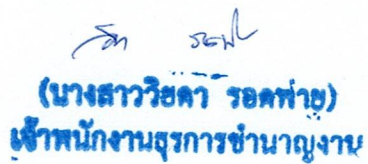 (นางสาววิยดา รอดพ่าย)
เจ้าพนักงานธุรการชำนาญงาน